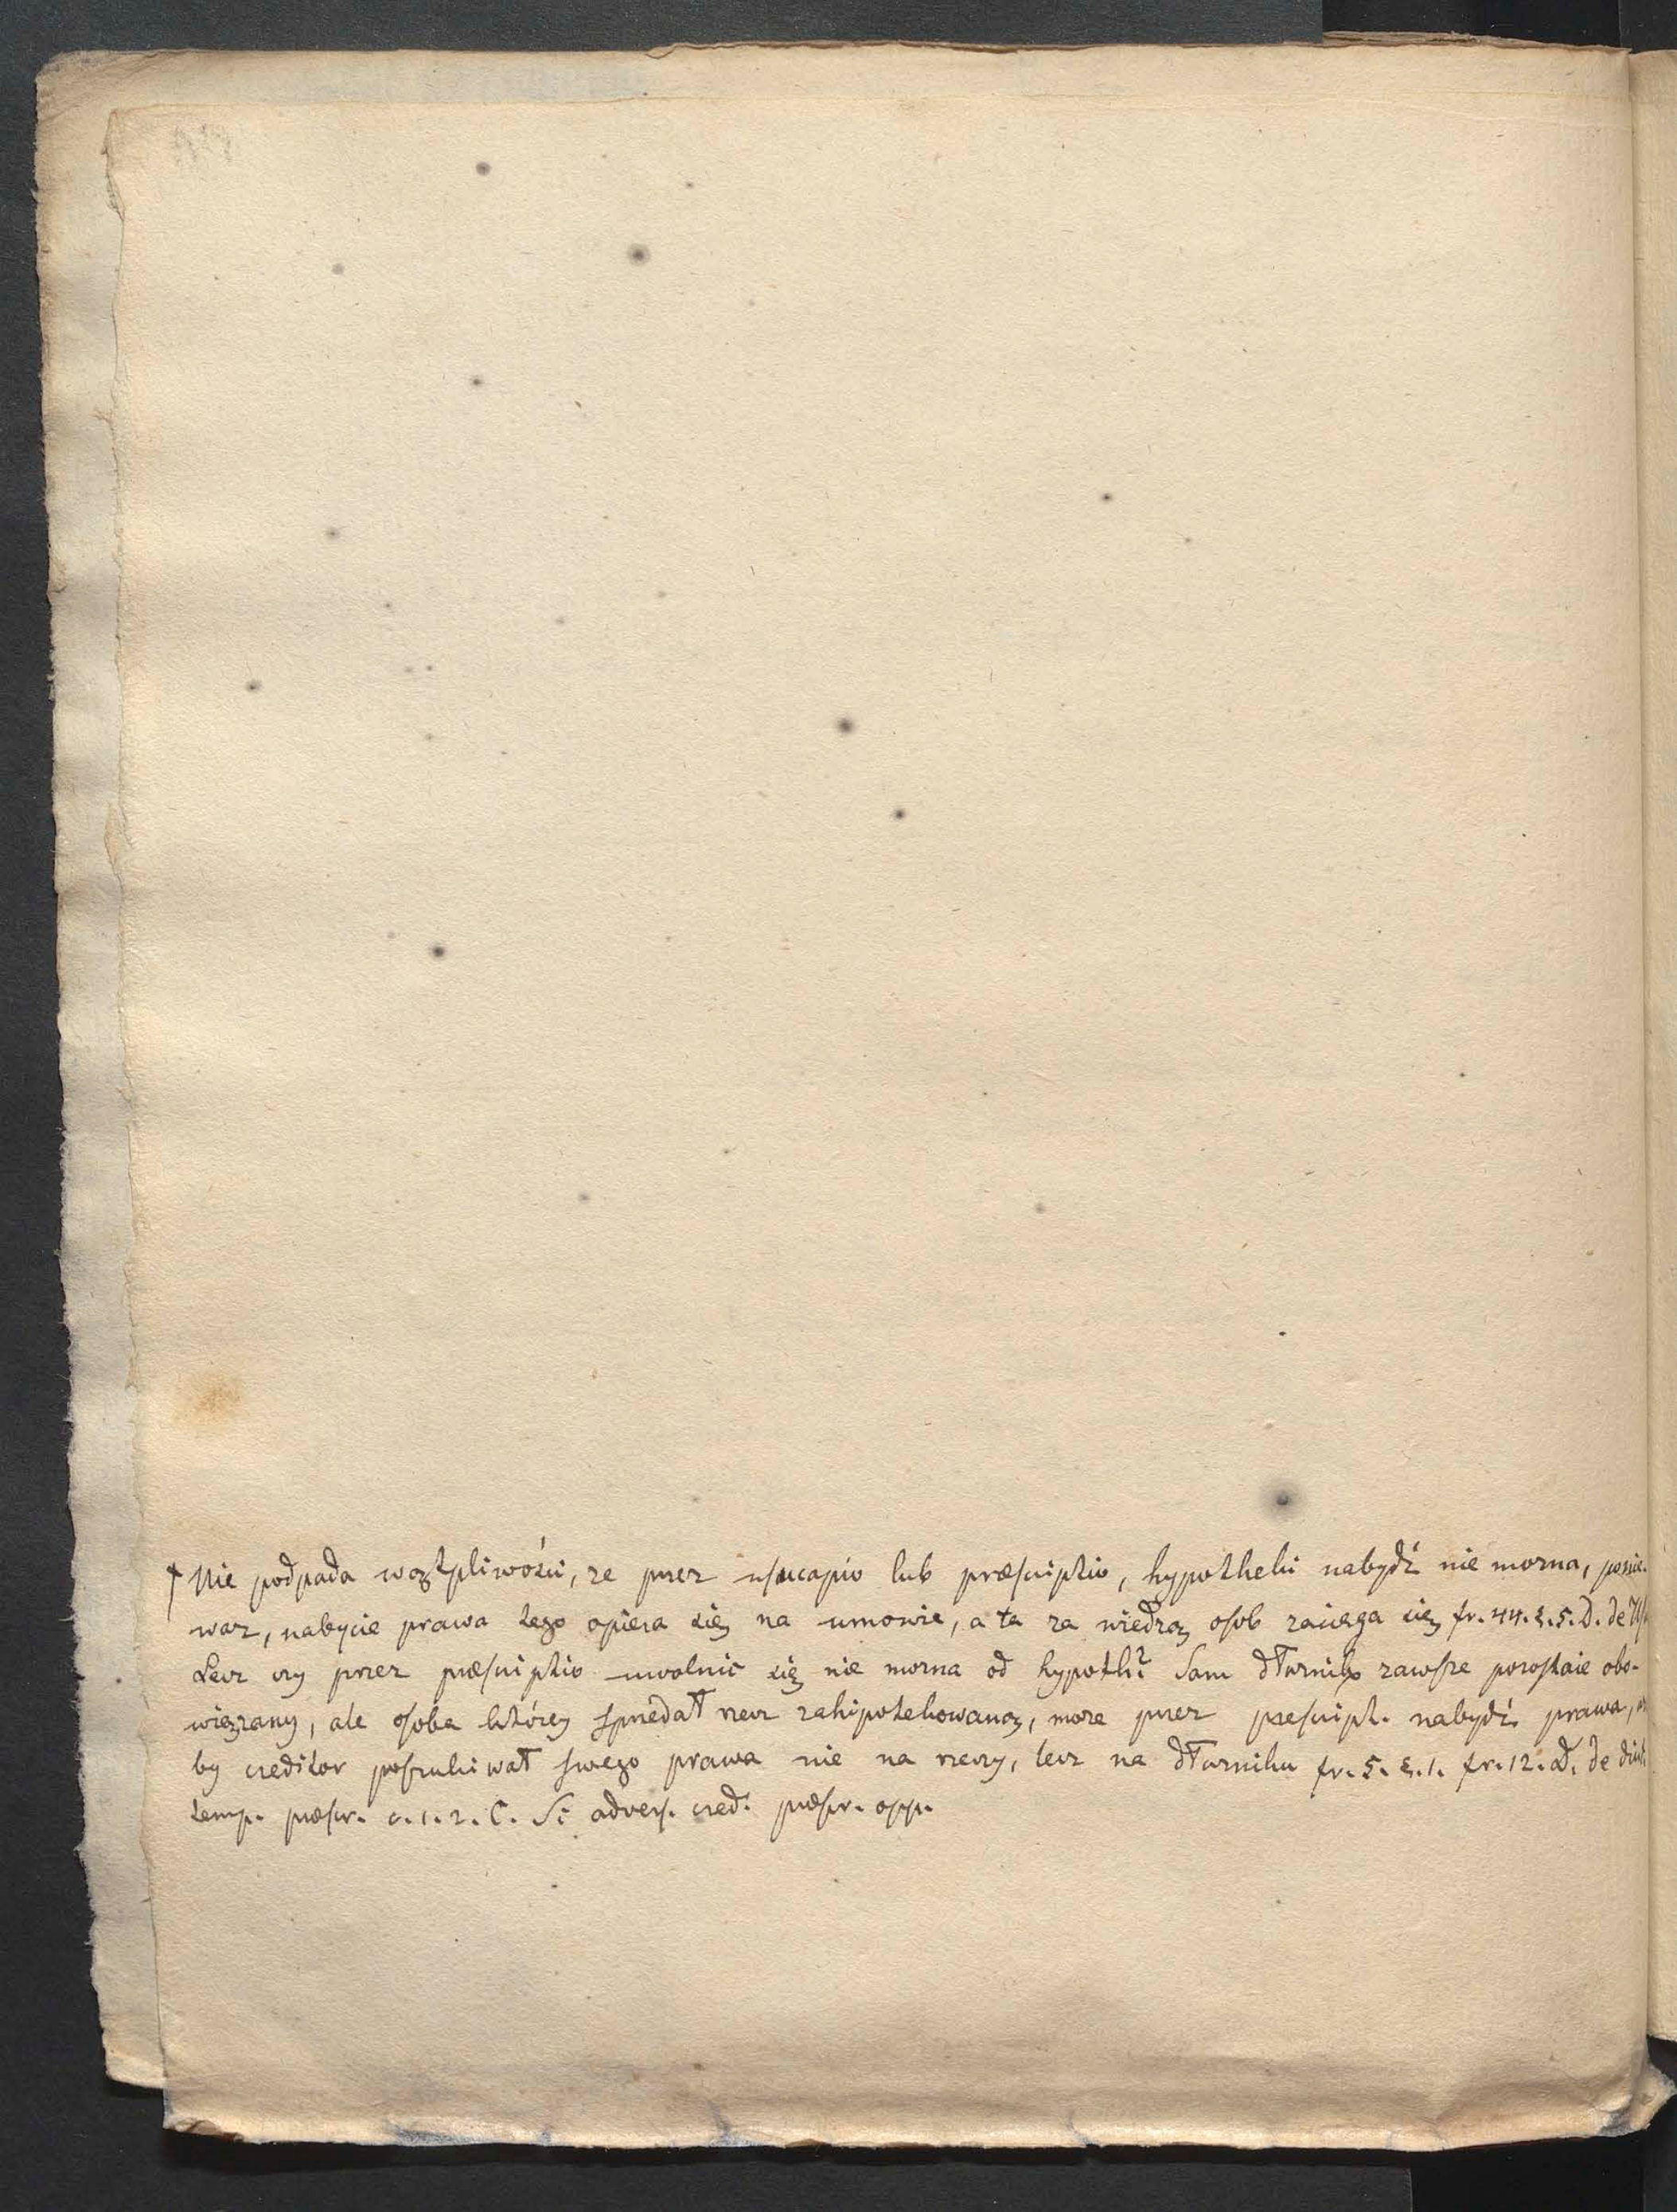 † Nie podpada wątpliwości, ze przez usucapio lub præscriptio, hypotheki nabydź nie mozna, ponie-
waz, nabycie prawa tego opiera się na umowie, a ta za wiedzą osob zaciąga się fr. 44. §. 5. D. de Us
Lecz czy przez præscriptio uwolnić się nie mozna od hypoth? Sam dłuznik zawsze pozostaie obo-
wiązany, ale osoba którey sprzedał rzecz zahipotekowaną, moze przez prescript. nabydź prawa,
by creditor poszukiwał swego prawa nie na rzeczy, lecz na dłuzniku fr. 5. §. 1. fr. 12. D. de diut.
temp. præscr. c. 1. 2. C. Si advers. cred. præscr. opp.